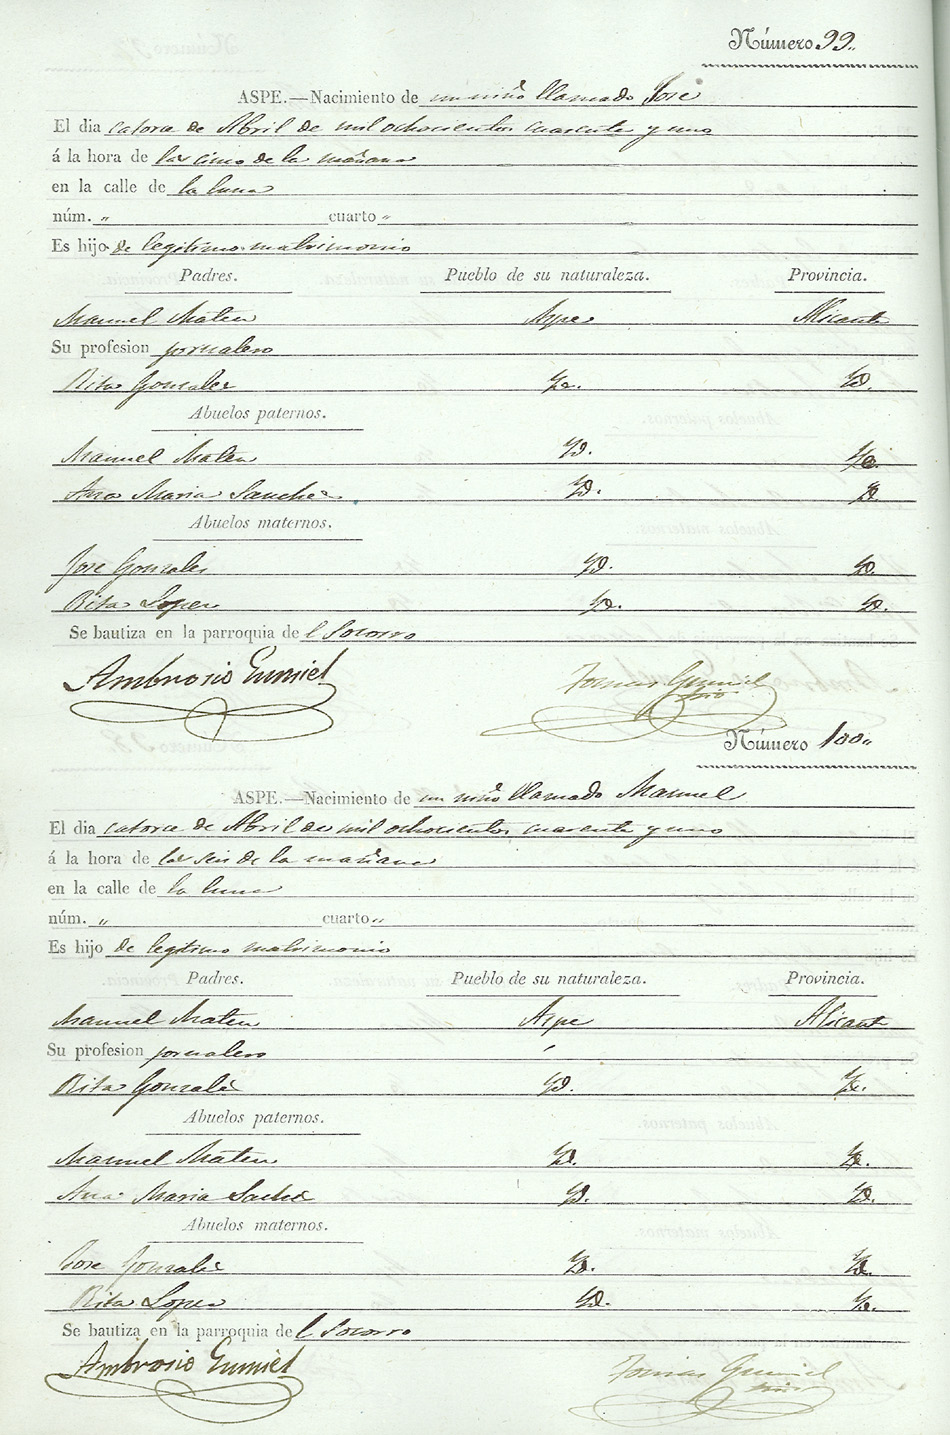 Número 99.
ASPE.—Nacimiento de un niño llamado Jose
El dia catorce de Abril de mil ochocientos cuarenta y uno
á la hora de las cinco de la mañana
en la calle de la luna
núm. „ cuarto „
Es hijo de legitimo matrimonio
Padres. Pueblo de su naturaleza. Provincia.
Manuel Mateu Aspe Alicante
Su profesion jornalero
Rita Gonzales Yd. Yd.
Abuelos paternos.
Manuel Mateu Yd. Yd.
Ana Maria Sanchez Yd. Yd.
Abuelos maternos.
Jose Gonzales Yd. Yd.
Rita Lopez Yd. Yd.
Se bautiza en la parroquia del Socorro
Ambrosio Gumiel Tomas Gumiel
Número 100„
ASPE.—Nacimiento de un niño llamado Manuel
El dia catorce de Abril de mil ochocientos cuarenta y uno
á la hora de las seis de la mañana
en la calle de la luna
núm. „ cuarto „
Es hijo de legitimo matrimonio
Padres. Pueblo de su naturaleza. Provincia.
Manuel Mateu Aspe Alicante
Su profesion jornalero
Rita Gonzales Yd. Yd.
Abuelos paternos.
Manuel Mateu Yd. Yd.
Ana Maria Sanchez Yd. Yd.
Abuelos maternos.
Jose Gonzales Yd. Yd.
Rita Lopez Yd. Yd.
Se bautiza en la parroquia del Socorro
Ambrosio Gumiel Tomas Gumiel